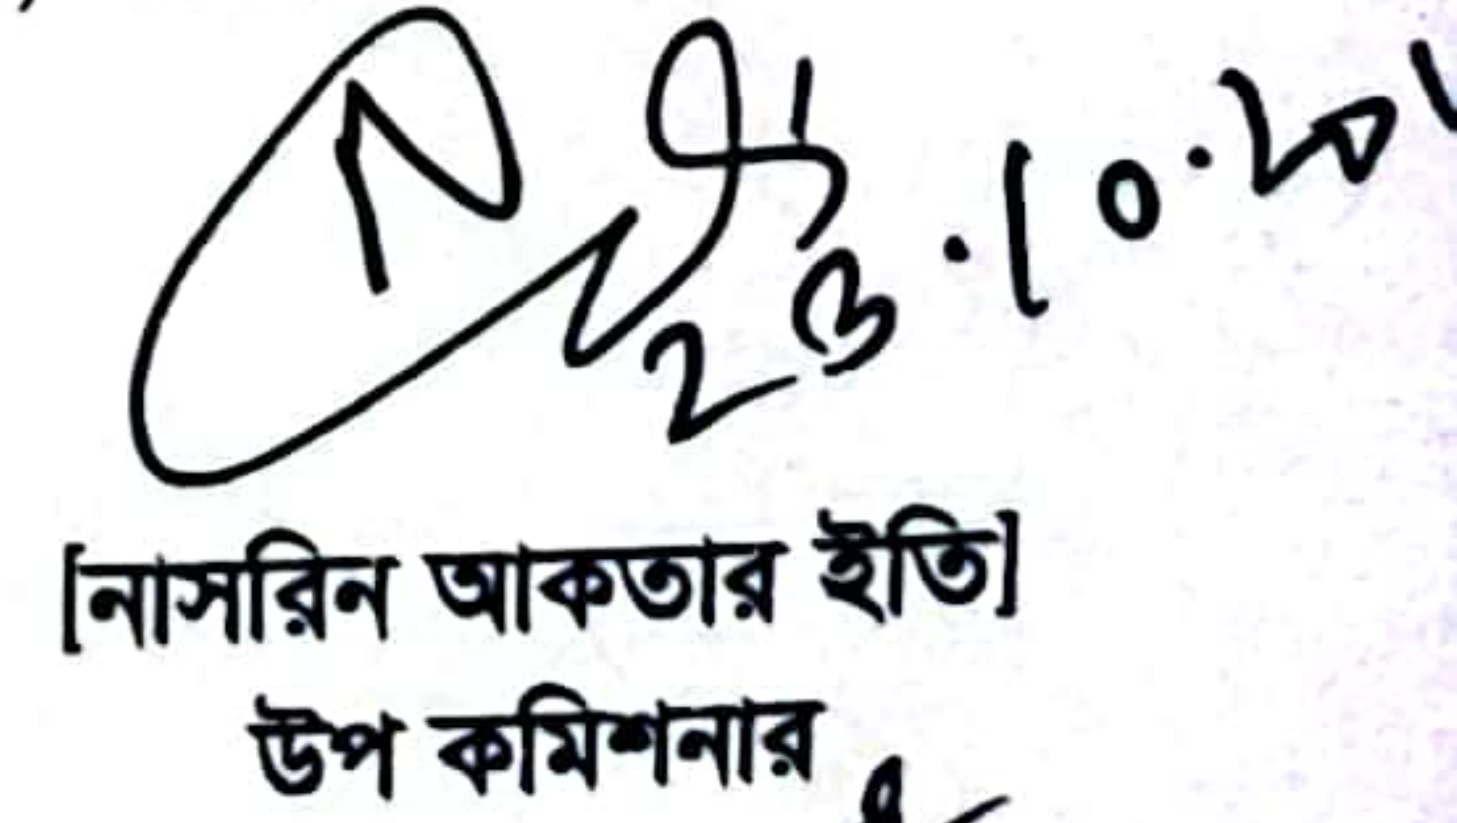 23.10.20
[নাসরিন আকতার ইতি]
উপ কমিশনার